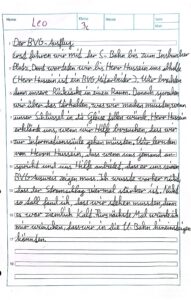 Name
Leo
Klasse
7c
Der BVG-Ausflug
Erst fuhren wir mit der S-Bahn bis zum Innsbrucker
Platz. Dort wurden wir von Herr Hussein uns abholt
(Herr Hussein ist ein BVG-Mitarbeiter). Wir brachten
dann unsere Rücksäcke in einen Raum. Danach sprachen
wir über das Verhalten, was wir machen würden wenn
unser Schlüssel in die Gleise fallen würde. Herr Hussein
erklärte uns, wenn wir Hilfe brauchen, dass wir
zur Informationssäule gehen müssten. Wir lernten
von Herrn Hussein, dass wenn uns jemand an-
spricht und uns Hilfe anbietet, dass er uns einen
BVG-Ausweis zeigen muss. Ich wurde vorher nicht
dass der Stromschlag viermal stärker ist. Nicht
so toll fand ich, dass wir stehen mussten denn
es war ziemlich kalt. Fürs nächste Mal würde ich
mir wünschen, dass wir in die U-Bahn hineinsteigen
könnten.